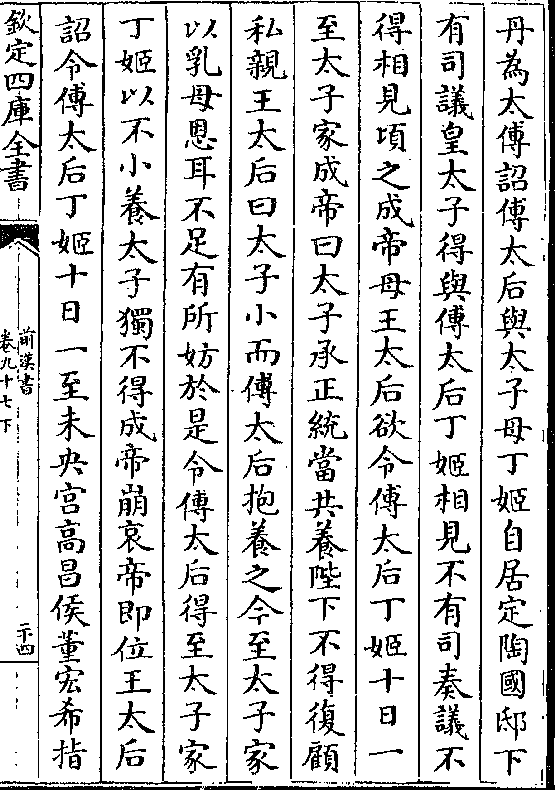 丹為太傅詔傅太后與太子母丁姬自居定陶國邸下
有司議皇太子得與傅太后丁姬相見不有司奏議不
得相見頃之成帝母王太后欲令傅太后丁姬十日一
至太子家成帝曰太子承正統當共養陛下不得復顧
私親王太后曰太子小而傅太后抱養之今至太子家
以乳母恩耳不足有所妨於是令傅太后得至太子家
丁姬以不小養太子獨不得成帝崩哀帝即位王太后
詔令傅太后丁姬十日一至未央宫高昌侯董宏希指
欽定四庫全書
前漢書
卷九十七下
二十四